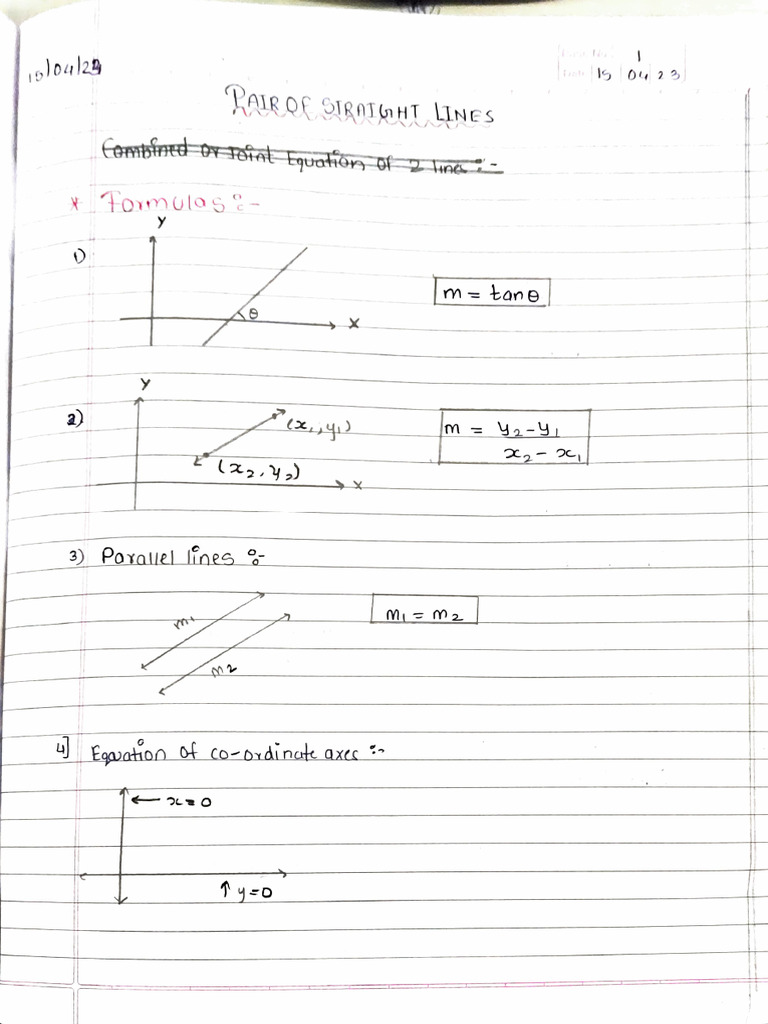 15/04/23
1
15 04 23
PAIR OF STRAIGHT LINES
Combined or Joint Equation of 2 line :-
* Formulas :-
1)
Y
θ
X
m = tanθ
2)
Y
(x₁, y₁)
(x₂, y₂)
X
m = y₂-y₁
x₂ - x₁
3) Parallel lines :-
m₁
m₂
m₁ = m₂
4] Equation of co-ordinate axes :-
← x=0
↑ y=0